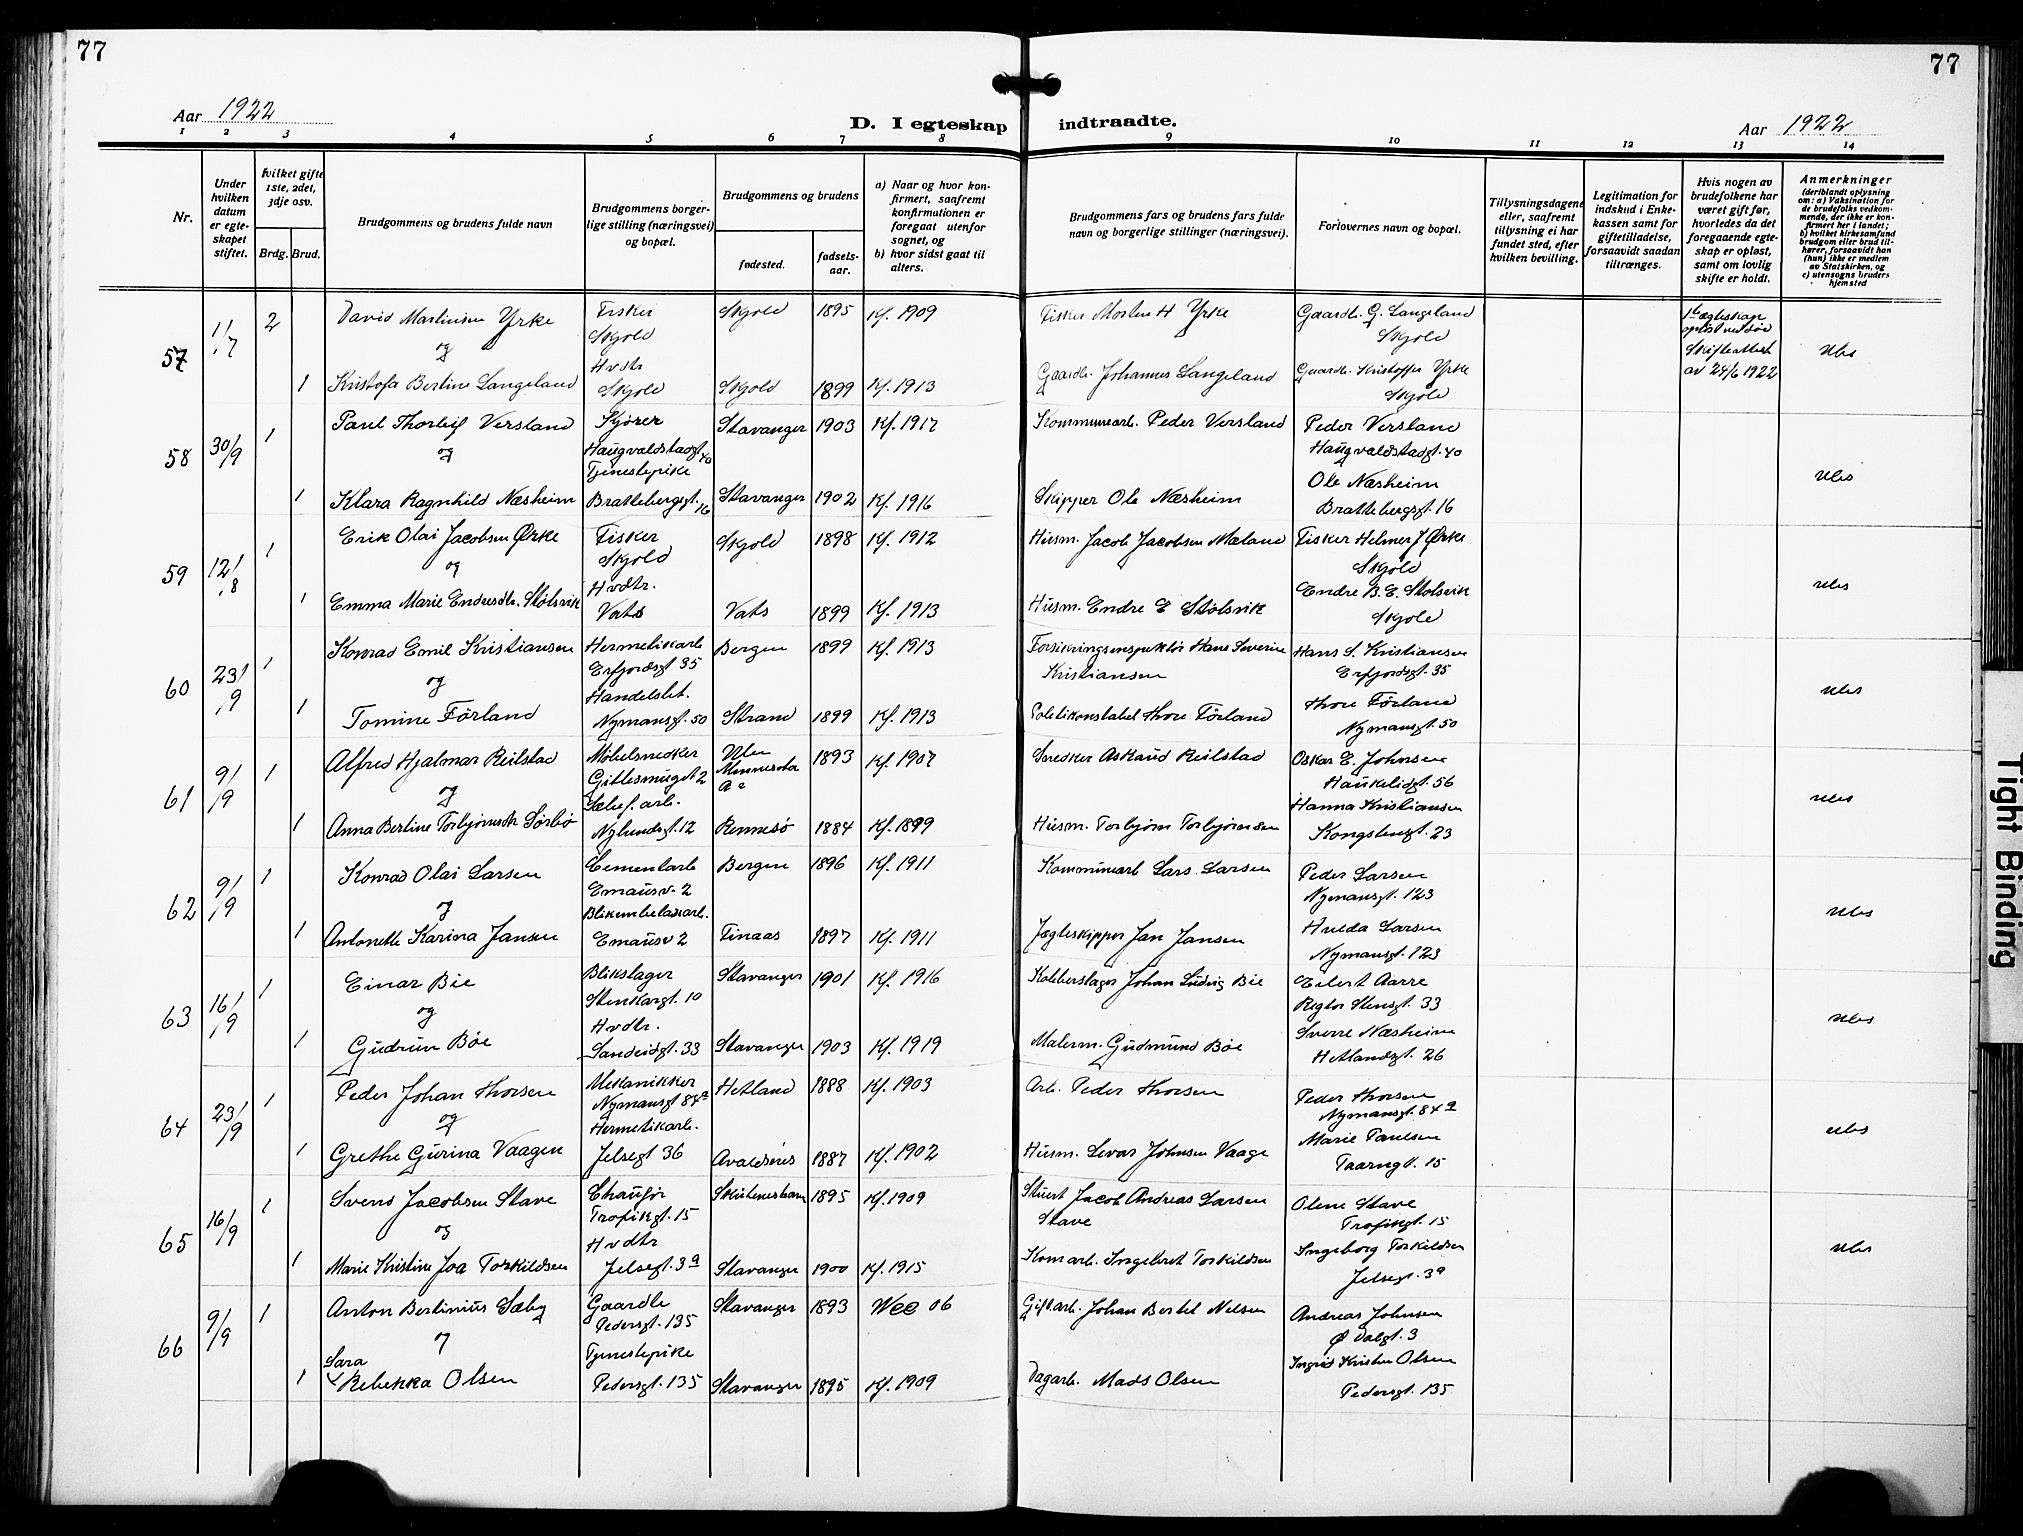 77
77
Aar 1922
D. I egteskap indtraadte.
Aar 1922
1 2 3 4 5 6 7 8 9 10 11 12 13 14
Nr.
Under hvilken datum er egteskapet stiftet.
hvilket gifte 1ste, 2det, 3dje osv.
Brdg. Brud.
Brudgommens og brudens fulde navn
Brudgommens borgerlige stilling (næringsvei) og bopæl.
Brudgommens og brudens
fødested.
fødselsaar.
a) Naar og hvor konfirmert, saafremt konfirmationen er foregaat utenfor sognet, og
b) hvor sidst gaat til alters.
Brudgommens fars og brudens fars fulde navn og borgerlige stillinger (næringsvei).
Forlovernes navn og bopæl.
Tillysningsdagene eller, saafremt tillysning ei har fundet sted, efter hvilken bevilling.
Legitimation for indskud i Enkekassen samt for giftetilladelse, forsaavidt saadan tiltrænges.
Hvis nogen av brudefolkene har været gift før, hvorledes da det foregaaende egteskap er opløst, samt om lovlig skifte er holdt.
Anmerkninger
(deriblandt oplysning om: a) Vaksination for de brudefolks vedkommende, der ikke er konfirmert her i landet;
b) hvilket kirkesamfund brudgom eller brud tilhører, forsaavidt han (hun) ikke er medlem av Statskirken, og
c) utensogns bruders hjemsted
57 1/7 2 David Martinsen Yrke Fisker Skjold Skjold 1895 Kf. 1909 Fisker Morten H Yrke Gaardb. G. Langeland Skjold
og
1 Kristofa Bertine Langeland Hvdtr Skjold Skjold 1899 Kf. 1913 Gaardb. Johannes Langeland Gaardb. Kristoffer Yrke Skjold
Skifteattest av 24/6 1922
58 30/9 1 Paul Thorleif Versland Kjører Haugvaldstadgt. 40 Stavanger 1903 Kf. 1917 Kommunearb. Peder Versland Peder Versland Haugvaldstadgt. 40
og
1 Klara Ragnhild Næsheim Tjenestepike Brattebergsgt. 16 Stavanger 1902 Kf. 1916 Skipper Ole Næsheim Ole Næsheim Brattebergsgt. 16
59 12/8 1 Erik Olai Jacobsen Ørke Fisker Skjold Skjold 1898 Kf. 1912 Husm. Jacob Jacobsen Mæland Fisker Helmer J Ørke Skjold
og
1 Emma Marie Endresdtr. Stølsvik Hvdtr. Vats Vats 1899 Kf. 1913 Husm. Endre E Stølsvik Endre B. E. Stolsvik Skjold
60 23/9 1 Konrad Emil Kristiansen Hermetikarb Erfjordsgt 35 Bergen 1899 Kf. 1913 Forsikringsinspektør Hans Severin Kristiansen Hans S. Kristiansen Erfjordsgt. 35
og
1 Tomine Førland Handelsbt. Nymansgt. 50 Strand 1899 Kf. 1913 Politikonstabel Thore Førland Thore Førland Nymansgt. 50
61 9/9 1 Alfred Hjalmar Reilstad Møbelsnedker Minnesota 1893 Kf. 1907 Snedker Reilstad Oskar E. Johnsen Haukeligt. 56
og
1 Anna Bertine Torbjørnsdtr Sørbø Nylundsgt. 12 Rennesø 1884 Kf. 1899 Husm. Torbjørn Torbjørnsen Hanna Kristiansen Kongsteinsgt. 23
62 9/9 1 Konrad Olai Larsen Cementarb Emausv. 2 Bergen 1896 Kf. 1911 Kommunearb Lars Larsen Peder Larsen Nymansgt. 123
og
1 Antonette Karina Jansen Emausv 2 Tinaas 1897 Kf. 1911 Jægteskipper Jan Jansen Hulda Larsen Nymansgt. 123
63 16/9 1 Einar Bie Blikslager Stenkargt. 10 Stavanger 1901 Kf. 1916 Kobberslager Johan Ludvig Bie Eilert Aarre Rektor Stensgt. 33
og
1 Gudrun Bøe Hvdtr. Sandeidgt. 33 Stavanger 1903 Kf. 1919 Malerm. Gudmund Bøe Sverre Næsheim Hetlandsgt. 26
64 23/9 1 Peder Johan Thorsen Mekanikker Nymansgt 84a Hetland 1888 Kf. 1903 Arb. Peder Thorsen Peder Thorsen Nymansgt. 84a
og
1 Grethe Gurina Vaagen Hermetikarb. Jelsegt 36 Avaldsnes 1887 Kf. 1902 Husm. Sivar Johnsen Vaage Marie Paulsen Taarngt. 15
65 16/9 1 Svend Jacobsen Stave Chaufør Trafikgt. 15 Skudeneshavn 1895 Kf. 1909 Stuert Jacob Andreas Larsen Stave Olene Stave Trafikgt. 15
og
1 Marie Kristine Joa Torkildsen Hvdtr Jelsegt. 3a Stavanger 1900 Kf. 1915 Kom arb. Ingebret Torkildsen Ingeborg Torkildsen Jelsegt. 3a
66 9/9 1 Anton Bertinius Sæby Gaardb Pedersgt. 135 Stavanger 1893 06 Johan Bertel Nilsen Andreas Johnsen Ø Dalgt. 3
og
1 Sara Rebekka Olsen Tjenestepike Pedersgt. 135 Stavanger 1895 Kf. 1909 Dagarb. Mads Olsen Ingrid Olsen Pedersgt. 135
Tight Binding